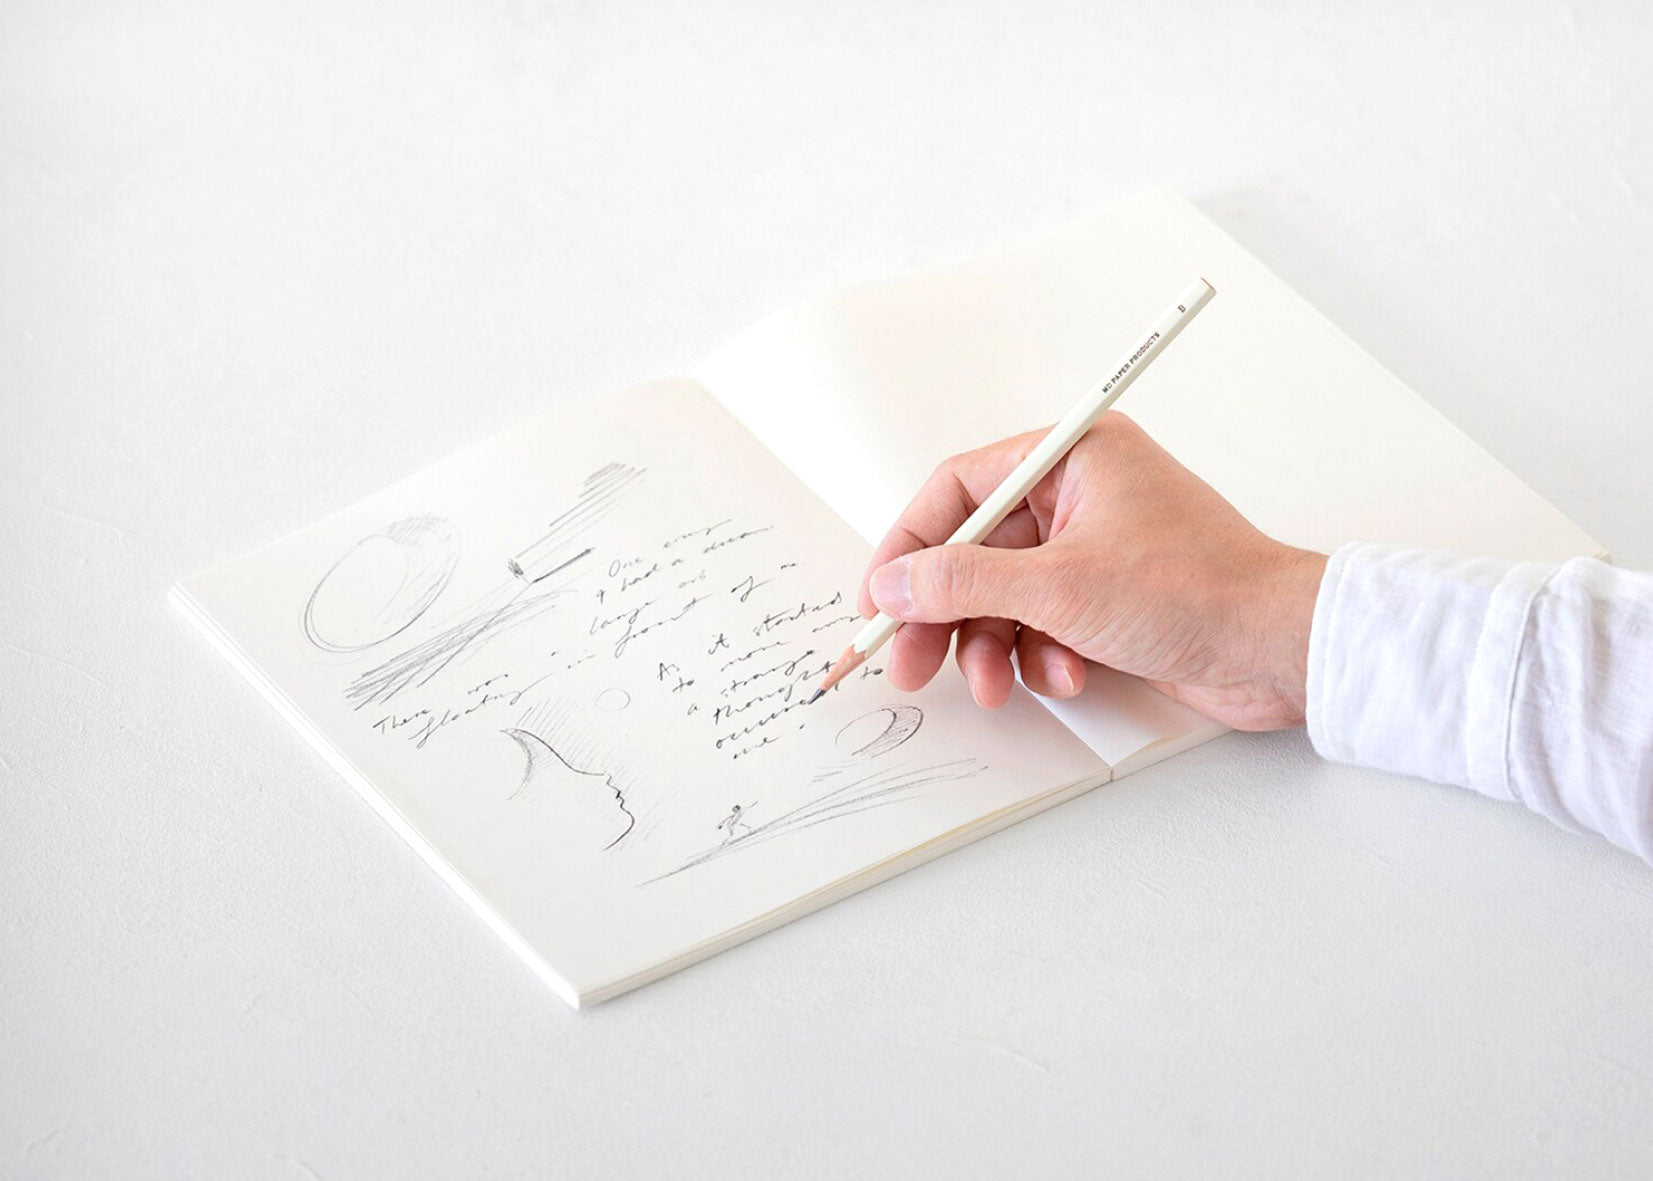 One
I had a dream
There was a large orb
floating in front of me
As it started
to move
a strange
thought
occurred to
me.
MD PAPER PRODUCTS B